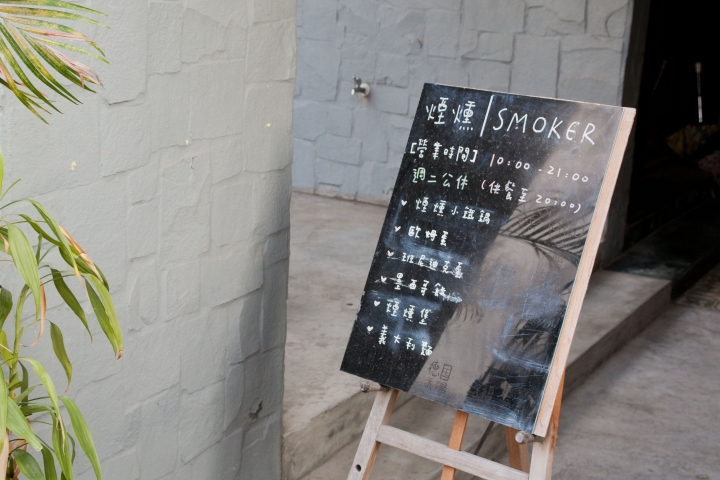 煙燻|SMOKER
[營業時間] 10:00-21:00
週二公休 (供餐至20:00)
♥ 煙燻小鐵鍋
♥ 歐姆蛋
♥ 班尼迪克蛋
♥ 墨西哥餅
♥ 煙燻堡
♥ 義大利麵
德國